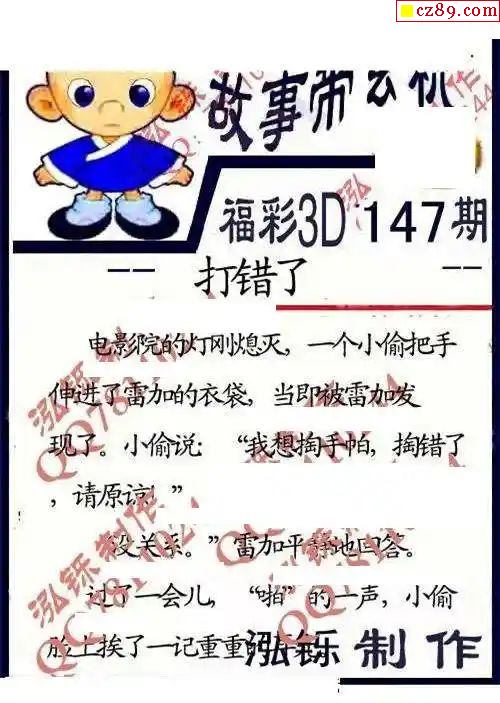 cz89.com
故事带玄机
福彩3D 147期
-- 打错了 --
电影院的灯刚熄灭，一个小偷把手
伸进了雷加的衣袋，当即被雷加发
现了。小偷说：“我想掏手帕，掏错了
，请原谅！”
没关系。”雷加平静地回答。
过了一会儿，“啪”的一声，小偷
脸上挨了一记重重的
泓铄制作